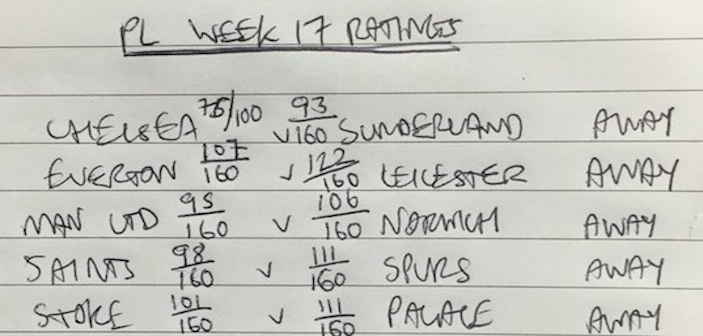 PL WEEK 17 RATINGS
CHELSEA 75/100 v 93/160 SUNDERLAND AWAY
EVERTON 107/160 v 122/160 LEICESTER AWAY
MAN UTD 95/160 v 106/160 NORWICH AWAY
SAINTS 98/160 v 111/160 SPURS AWAY
STOKE 101/160 v 111/160 PALACE AWAY